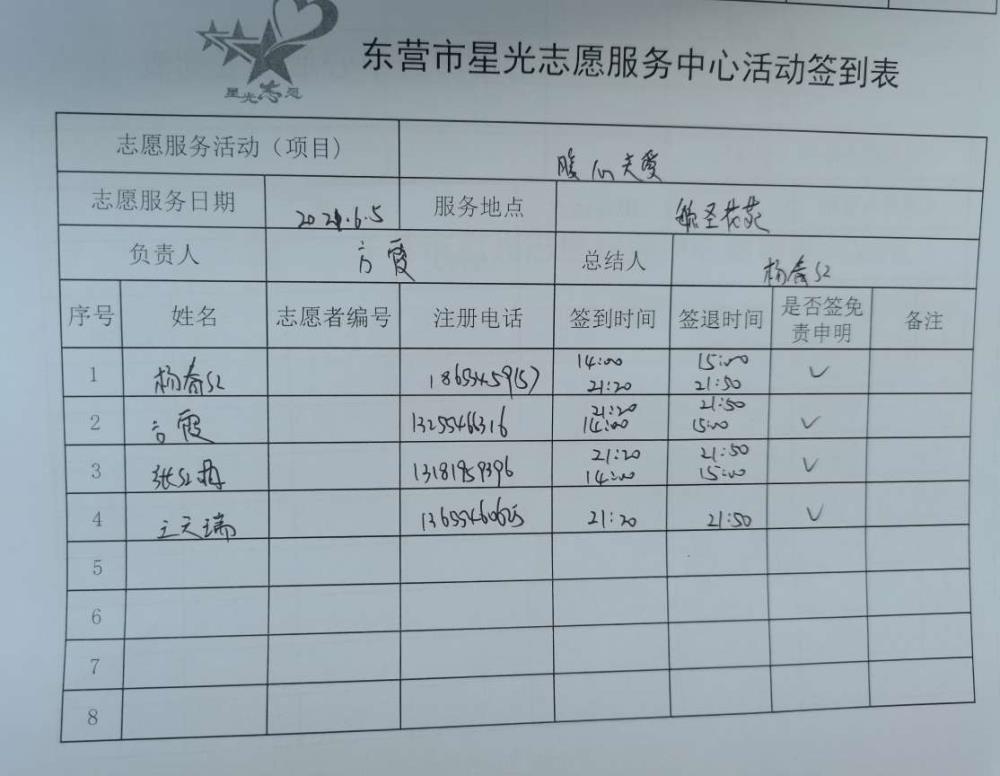 星光志愿
东营市星光志愿服务中心活动签到表
志愿服务活动（项目） 暖心关爱
志愿服务日期 2021.6.5 服务地点
负责人 方霞 总结人 杨春红
序号 姓名 志愿者编号 注册电话 签到时间 签退时间 是否签免责申明 备注
1 杨春红 14:00 15:00 ✓
21:20 21:50
2 方霞 13255466316 21:20 21:50 ✓
14:00 15:00
3 13181959396 21:20 21:50 ✓
14:00 15:00
4 王天瑞 13655460625 21:20 21:50 ✓
5
6
7
8